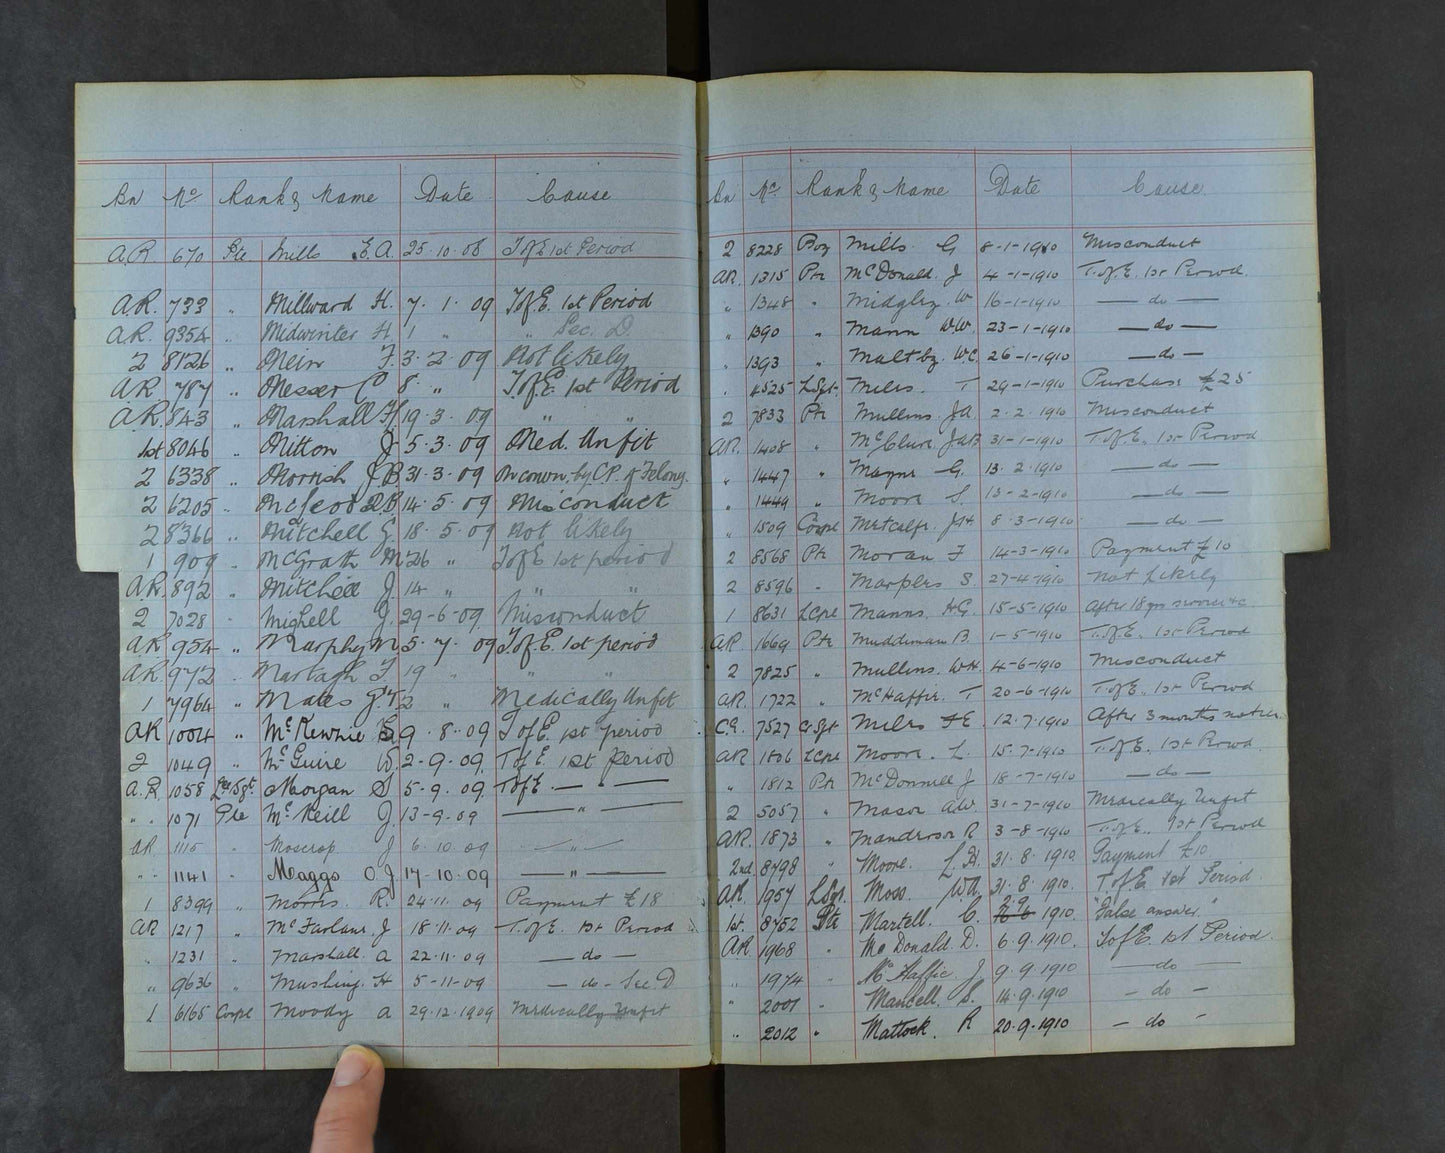 Bn No Rank & Name Date Cause
A.R. 670 Pte Mills E.A. 25.10.08 T of E 1st Period
A.R. 733 " Millward H. 7. 1. 09 T of E. 1st Period
A.R. 9354 " Midwinter H 1 " " Sec. D
2 8126 " Meir F. 3. 2. 09 Not likely
A.R. 787 " Messer C 8. " T of E. 1st Period
A.R. 843 " Marshall H 19. 3. 09 " "
1st 8046 " Mitton J. 5. 3. 09 Med. Unfit
2 6338 " Morrish J.B. 31. 3. 09 by C.P. of Felony.
2 6205 " McLeod D.B. 14. 5. 09 Misconduct
2 8366 " Mitchell G. 18. 5. 09 Not likely
1 909 " McGrath M 26 " T of E 1st period
A.R. 892 " Mitchell J. 14 " " "
2 7028 " Mighell J. 29-6-09 Misconduct
A.R. 954 " Murphy M. 5. 7. 09 T of E. 1st period
A.R. 972 " Murtagh T. 19 " " "
1 7964 " Mates G.T. 2 " Medically Unfit
A.R. 1004 " McKewnie G. 9. 8. 09 T of E. 1st period
2 1049 " McGuire W. 2-9. 09. T of E. 1st Period
A.R. 1058 Lce Sgt Morgan S 5-9. 09. T of E. — " —
" 1071 Pte McNeill J. 13-9. 09 — " —
A.R. 1115 Moscrop J 6. 10. 09 — " —
" 1141 " Maggs O.J. 17. 10. 09 — " —
1 8399 " Morris. R. 24. 11. 09 Payment £18
A.R. 1217 " McFarlane. J 18. 11. 09 T. of E. 1st Period
" 1231 " Marshall. A 22. 11. 09 — do —
" 9636 " Mushing. H 5-11-09 — do - Sec. D
1 6165 Corpl Moody A 29. 12. 1909 Medically Unfit
Bn No. Rank & Name Date Cause.
2 8228 Boy Mills. G 8-1-1910 Misconduct
A.R. 1315 Pte McDonald. J 4-1-1910 T. of. E. 1st Period
" 1348 " Midgley. W 16-1-1910 — do —
" 1390 " Mann W.W. 23-1-1910 — do —
" 1393 " Maltby. W.C. 26-1-1910 — do —
" 4525 L.Sgt. Miles. T 29-1-1910 Purchase £25
2 7833 Pte Mullins. J.A. 2. 2. 1910 Misconduct
A.R. 1408 " McClure. J.A.B 31-1-1910 T. of E. 1st Period
" 1447 " Mayne G. 13. 2. 1910 — do —
" 1449 " Moore S. 13-2-1910 — do —
" 1509 Corpl Metcalfe. J.H 8. 3-1910 — do —
2 8568 Pte Moran F 14-3-1910 Payment £10
2 8596 " Marples S. 27-4-1910 Not likely
1 8631 L.Cpl Manns. H.G. 15-5-1910 After 18 yrs service &c
A.R. 1669 Pte Muddiman B. 1-5-1910 T. of E. 1st Period
2 7825 " Mullins. W.H. 4-6-1910 Misconduct
A.R. 1722 " McHaffie. T 20-6-1910 T. of E. 1st Period
C.E. 7527 C.Sgt Miles F.E. 12. 7. 1910 After 3 months notice
A.R. 1806 L.Cpl Moore. L. 15. 7-1910 T. of E. 1st Period.
" 1812 Pte McDonnell J 18-7-1910 — do —
2 5057 " Mason A.W. 31-7-1910 Medically Unfit
A.R. 1873 " Manderson R 3-8-1910 T. of E. 1st Period
2nd 8798 " Moore. L.H. 31. 8. 1910 Payment £10
A.R. 1957 L.Sgt. Moss. W.A. 31. 8. 1910. T of E 1st Period
1st. 8752 Pte Martell. C. 29 1910. "False answer."
A.R. 1968 " McDonald. D. 6. 9. 1910. T of E. 1st Period.
" 1974 " McHaffie. J 9. 9. 1910 — do —
" 2001 " Mancell. S. 14. 9. 1910 — do —
" 2012 " Mattock. R 20. 9. 1910 — do —